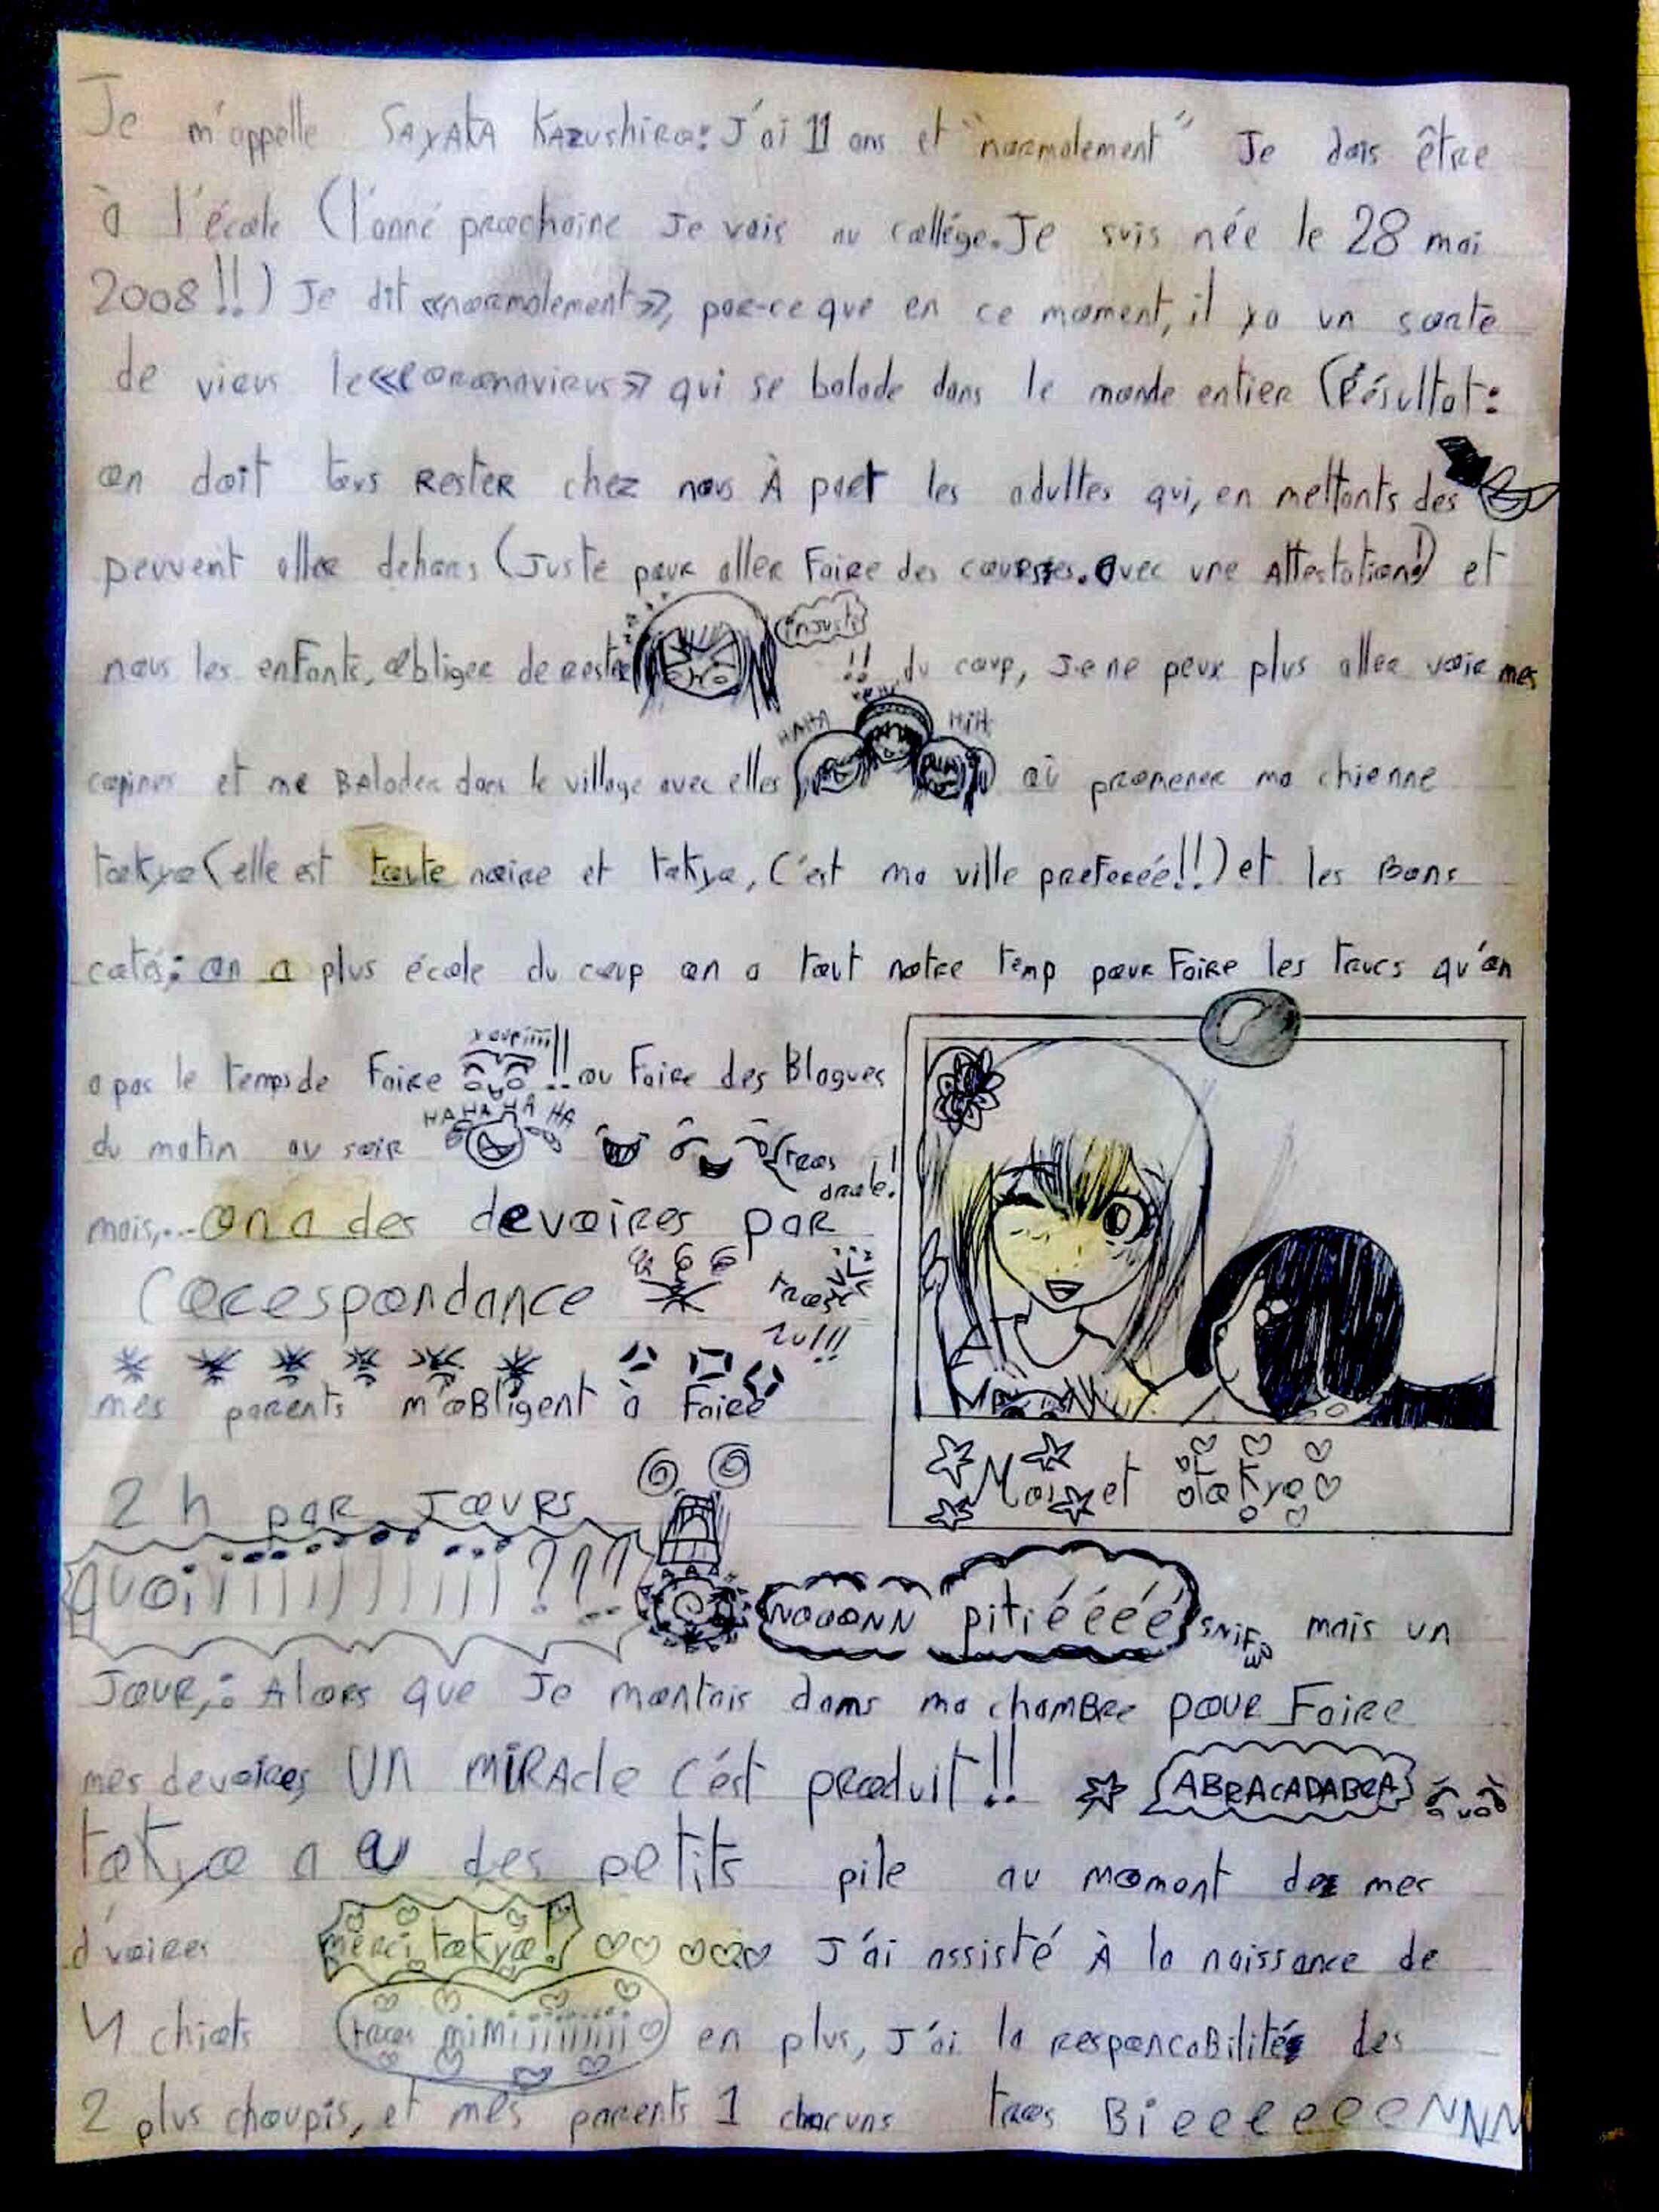 Je m'appelle SAYAKA KAZushira: J'ai 11 ans et "normalement" Je dois être
à l'école (l'anné prochaine Je vais au collége. Je suis née le 28 mai
2008!!) Je dit «normalement», par-ce que en ce moment, il ya un sorte
de virus le «coronavirus» qui se balade dans le monde entier (Résultat:
on doit tous RESTER chez nous À part les adultes qui, en mettants des
peuvent aller dehors (Juste pour aller Faire des courses. avec une Attestation!) et
injuste
nous les enFants, obliger de rester !! du coup, Je ne peux plus aller voir mes
HAHA HiH
copines et me BAlader dans le village avec elles où promener ma chienne
tokyo (elle est toute noire et tokyo, C'est ma ville preferée!!) et les Bons
cotés: on a plus école du coup on a tout notre temp pour Faire les trucs qu'on
youpiiii!!
a pas le temps de Faire !! ou Faire des Blagues
HAHAHA HA
du matin au soir
trops drole!
mais,... on a des devoires par
Corespondance
trops nul!!!
mes parents m'oBligent à Faire
2 h par Jours
Moi et tokyo
quoiiiiiiiiiiii???
NOOONN pitiéééé SNiF mais un
Jour,: Alors que Je montais dans ma chamBre pour Faire
mes devoires, UN MiRAcle C'ést produit!! ABRACADABRA
tokyo a eu des petits pile au momont de mes
d'voires merci tokyo! J'ai assisté À la naissance de
4 chiots trops miMiiiiiiiii en plus, J'ai la responcaBilités des
2 plus choupis, et mes parents 1 chacuns trops BieeeeeeeNNN